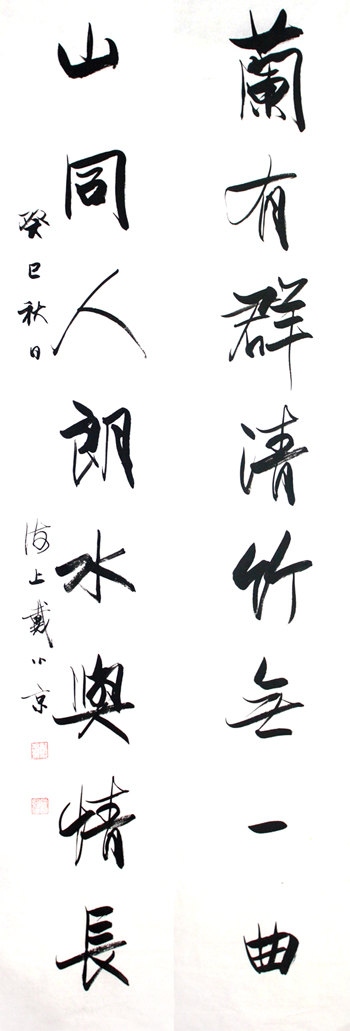 蘭有群清竹無一曲
山同人朗水與情長
癸巳秋日
海上戴小京